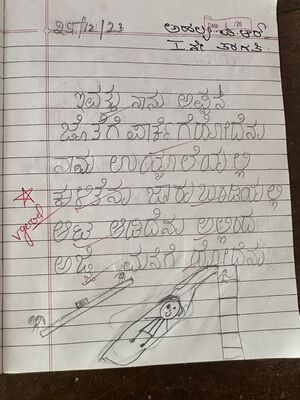 25/12/23
ಅಹಲ್ಯ ಎ ಆರ್
I ನೇ ತರಗತಿ
ಇವತ್ತು ನಾನು ಅಪ್ಪನ
ಜೊತೆಗೆ ಪಾರ್ಕ್ ಗೆ ಹೋದೆನು
ನಾನು ಉಯ್ಯಾಲೆಯಲ್ಲಿ
ಕುಳಿತೆನು ಜಾರು ಬಂಡಿಯಲ್ಲಿ
ಆಟ ಆಡಿದೆನು ಅಲ್ಲಿಂದ
ಅಜ್ಜಿ ಮನೆಗೆ ಹೋದೆನು
vgood